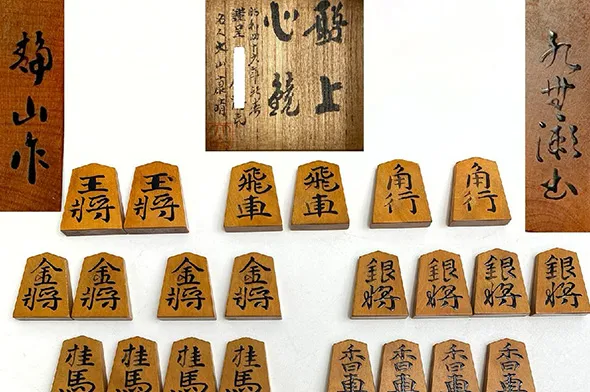 靜山作
盤上
心鏡
謹呈
大山康晴
水無瀬
王將
玉將
飛車
飛車
角行
角行
金將
金將
金將
金將
銀將
銀將
銀將
銀將
桂馬
桂馬
桂馬
桂馬
香車
香車
香車
香車